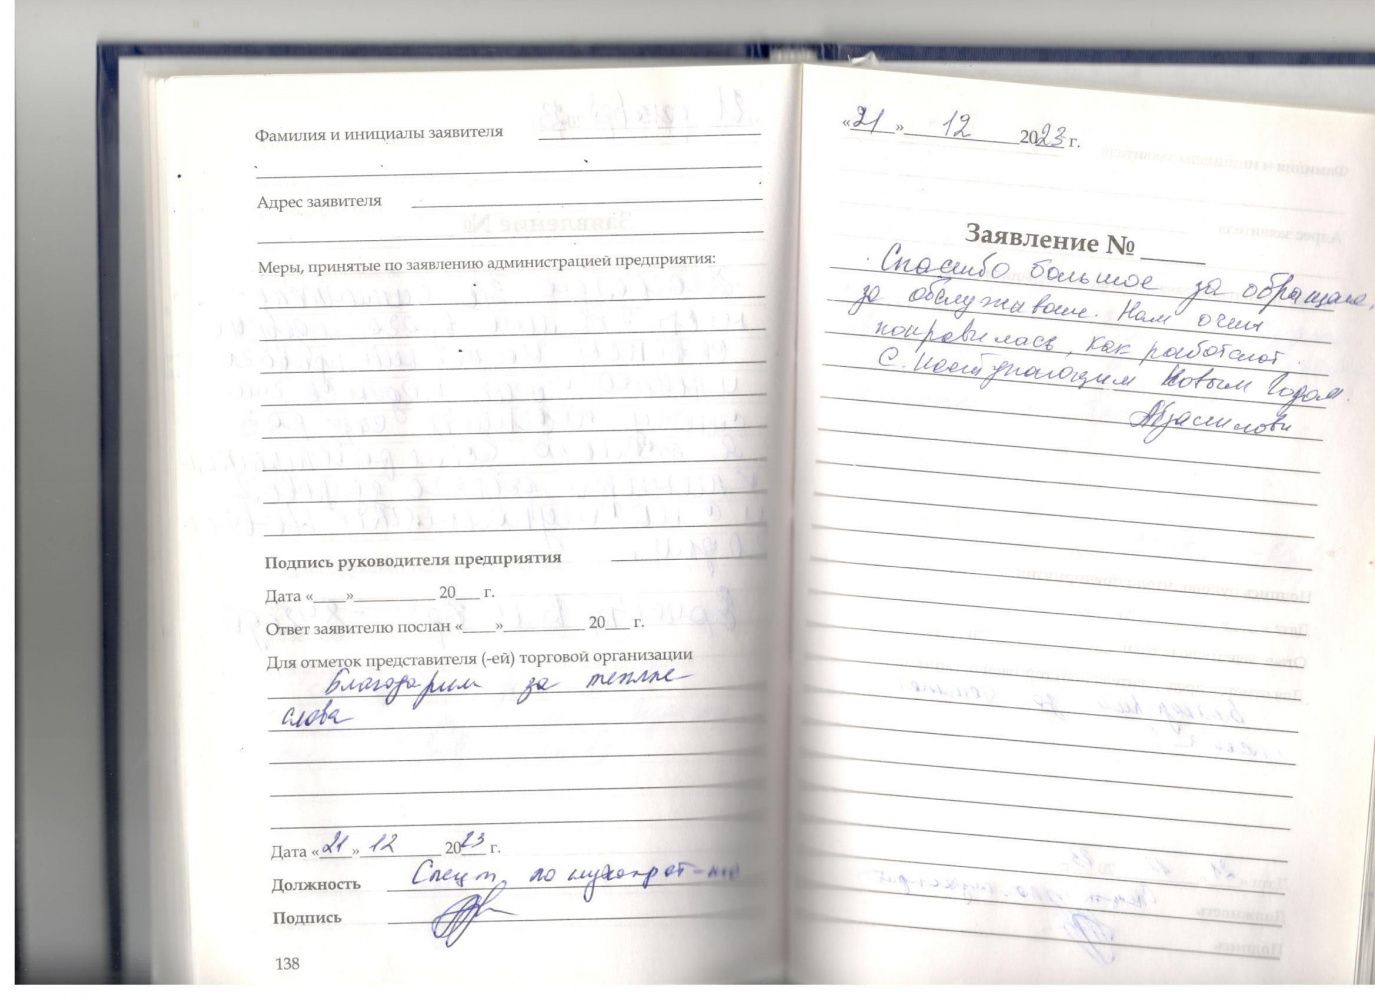 Фамилия и инициалы заявителя
Адрес заявителя
Меры, принятые по заявлению администрацией предприятия:
Подпись руководителя предприятия
Дата «____»__________ 20___ г.
Ответ заявителю послан «____»__________ 20___ г.
Для отметок представителя (-ей) торговой организации
Благодарим за теплые
слова
Дата «21» 12 2023 г.
Должность Спец-т по слухопрот-нию
Подпись
138
«21» 12 2023 г.
Заявление №_____
Спасибо большое за обращение,
за обслуживание. Нам очень
понравилась, как работают.
С. Наступающим Новым Годом.